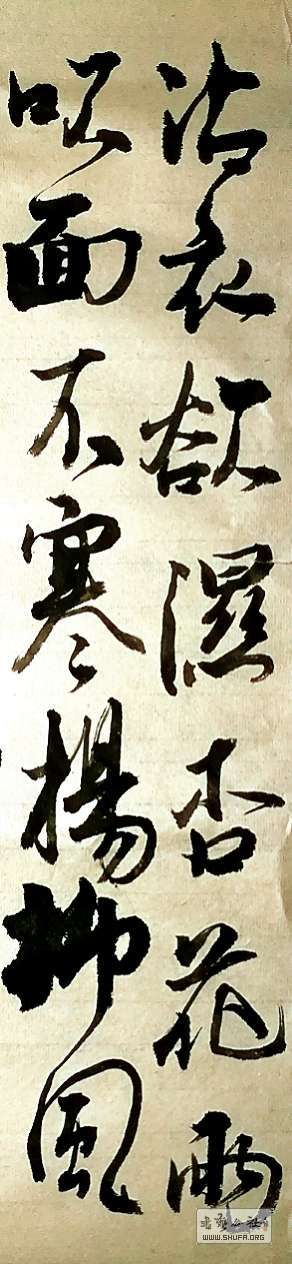 沾衣欲濕杏花雨
吹面不寒楊柳風
書藝公社
WWW.SHUFA.ORG